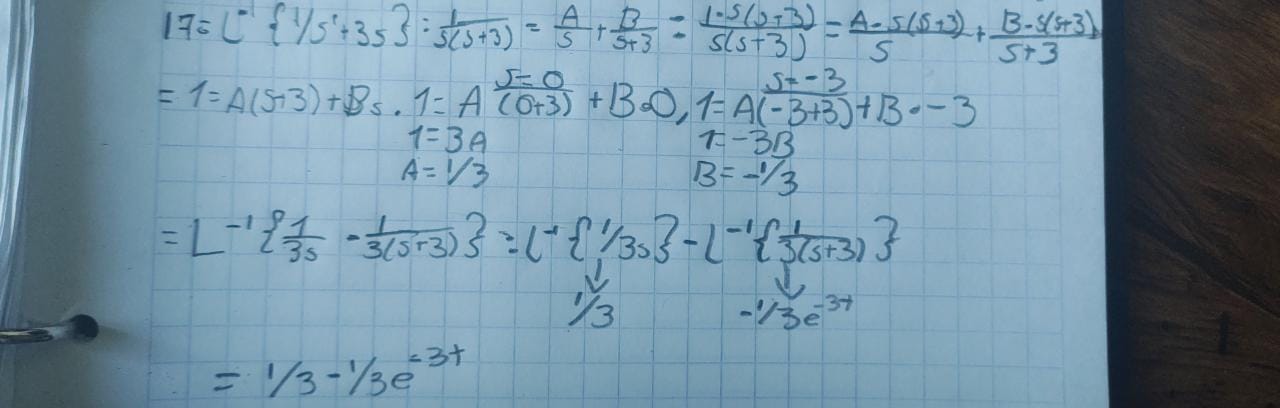 17= L⁻¹ {1/s¹+3s} : 1/s(s+3) = A/s + B/s+3 = 1·s(s+3)/s(s+3) = A·s(s+3)/s + B·s(s+3)/s+3
= 1=A(s+3)+Bs. 1=A s=0/(0+3) + B·0, 1=A s=-3/(-3+3) + B·-3
1=3A 1=-3B
A=1/3 B=-1/3
= L⁻¹{1/3s - 1/3(s+3)} = L⁻¹{1/3s} - L⁻¹{1/3(s+3)}
↓ ↓
1/3 -1/3e⁻³ᵗ
= 1/3-1/3e⁻³ᵗ